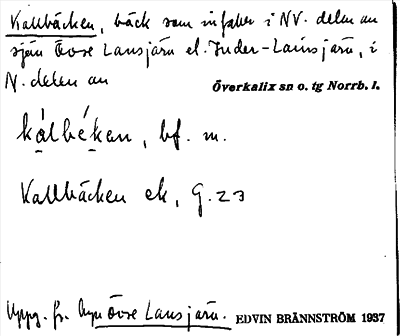 Kallbäcken, bäck som infaller i NV. delen av
sjön Övre Lansjärv el. Inder-Lansjärv, i
N. delen av
Överkalix sn o. tg Norrb. l.
kálbékan, bf. m.
Kallbäcken ek, G. 23
Uppg. fr. byn Övre Lansjärv. EDVIN BRÄNNSTRÖM 1937